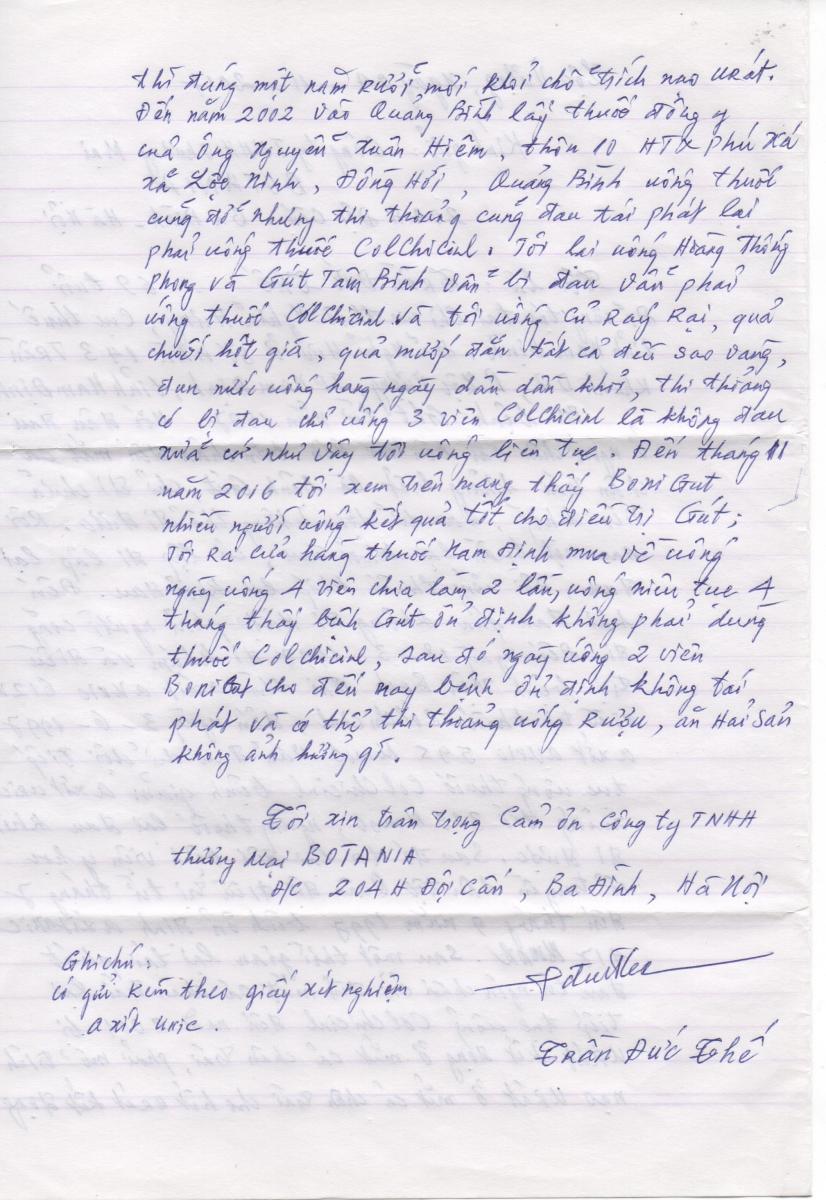 thì đúng một năm rưỡi mới khỏi chỗ trích nạo urát.
Đến năm 2002 vào Quảng Bình lấy thuốc đông y
của ông Nguyễn Xuân Hiêm, thôn 10 HTX Phú Xá
xã Lộc Ninh, Đồng Hới, Quảng Bình uống thuốc
cũng đỡ nhưng thi thoảng cũng đau tái phát lại
phải uống thuốc ColChicinl. Tôi lại uống Hoàng Thống
Phong và Gút Tâm Bình vẫn bị đau vẫn phải
uống thuốc ColChicinl và tôi uống củ Ráy Rại, quả
chuối hột già, quả mướp đắn tất cả đều sao vàng,
đun nước uống hàng ngày dần dần khỏi, thi thoảng
có bị đau chỉ uống 3 viên ColChicinl là không đau
nữa cứ như vậy tôi uống liên tục. Đến tháng 11
năm 2016 tôi xem trên mạng thấy BoniGut
nhiều người uống kết quả tốt cho điều trị Gút;
Tôi ra cửa hàng thuốc Nam Định mua về uống
ngày uống 4 viên chia làm 2 lần, uống niên tục 4
tháng thấy bệnh Gút ổn định không phải dùng
thuốc Colchicinl, sau đó ngày uống 2 viên
BoniGut cho đến nay bệnh ổn định không tái
phát và có thể thi thoảng uống rượu, ăn Hải Sản
không ảnh hưởng gì.
Tôi xin trân trọng Cảm ơn Công ty TNHH
thương mại BOTANIA
Đ/C 204H Đội Cấn, Ba Đình, Hà Nội
Ghi chú:
có gửi kèm theo giấy xét nghiệm
axít uric.
Trần Đức Thế